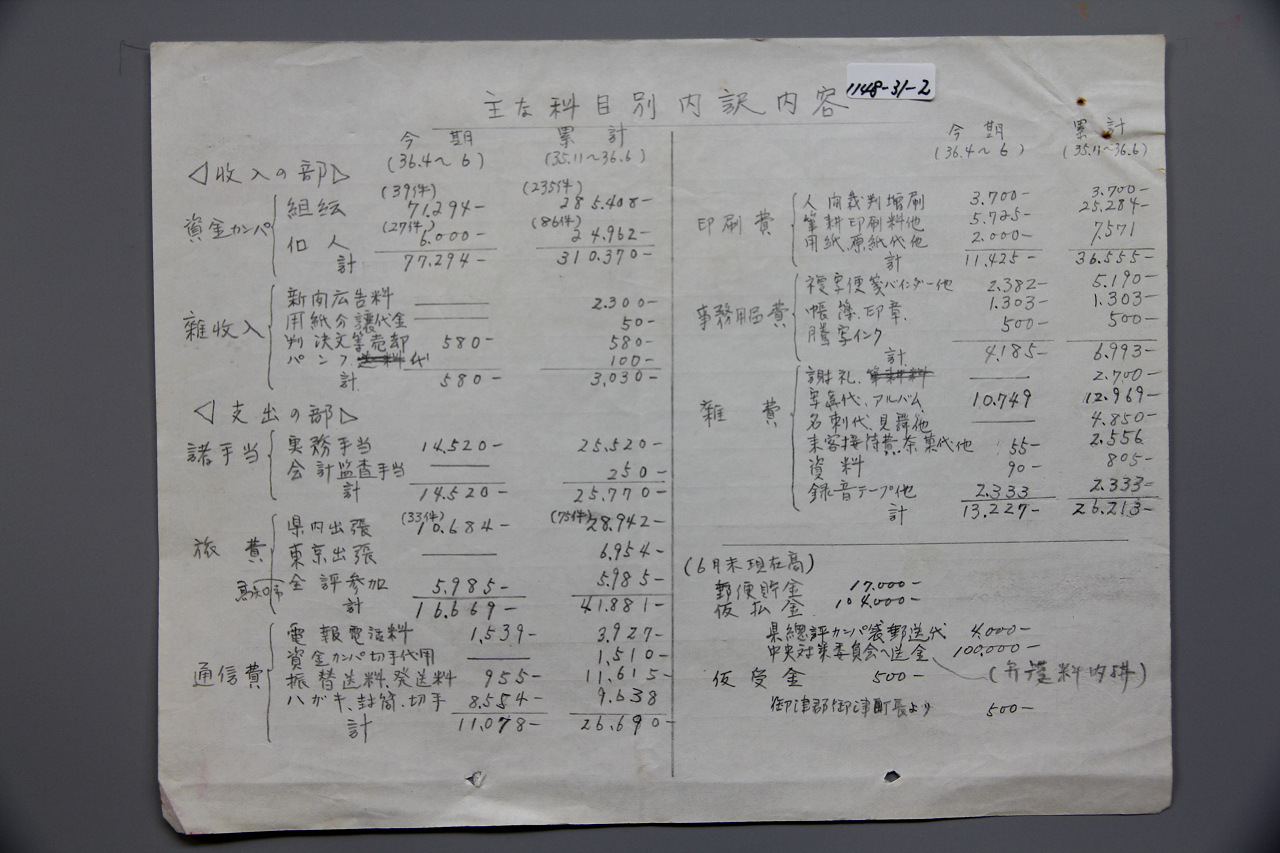 1148-31-2
主な科目別内訳内容
今期 累計
(36.4〜6) (35.11〜36.6)
◁収入の部▷
資金カンパ
(39件) (235件)
組织 71.294- 285.408-
(27件) (86件)
個人 6.000- 24.962-
計 77.294- 310.370-
雜収入
新向広告料 —— 2.300-
用紙分讓代金 —— 50-
判決文等売却 580- 580-
パンフ 代 100-
計 580- 3,030-
◁支出の部▷
諸手当
実務手当 14.520- 25.520-
会計監査手当 —— 250-
計 14.520- 25.770-
旅費
(33件) (75件)
県内出張 10.684- 28.942-
東京出張 —— 6.954-
全評参加 5.985- 5.985-
計 16.669- 41.881-
通信費
電報電話料 1,539- 3.927-
資金カンパ切手代用 —— 1,510-
振替送料、発送料 955- 11.615-
ハガキ、封筒、切手 8.554- 9.638
計 11.078- 26.690-
今期 累計
(36.4〜6) (35.11〜36.6)
印刷費
人向裁判増刷 3.700- 3.700-
筆耕印刷料他 5.725- 25.284-
用紙、原紙代他 2.000- 7.571
計 11.425- 36.555-
事務用品費
複写便箋バインダー他 2.382- 5.190-
帳簿、印章、 1.303- 1.303-
謄写インク 500- 500-
計 4.185- 6.993-
雜費
謝礼、 —— 2.700-
写真代、アルバム 10.749 12.969-
名刺代、見舞他 —— 4.850-
来客接待費、茶菓代他 55- 2.556
資料 90- 805-
録音テープ他 2.333 2.333-
計 13.227- 26.213-
(6月末現在高)
郵便貯金 17.000-
仮払金 104.000-
県総評カンパ袋郵送代 4.000-
中央対策委員会へ送金 100,000-
(弁護料内
仮受金 500-
御津郡御津町長より 500-